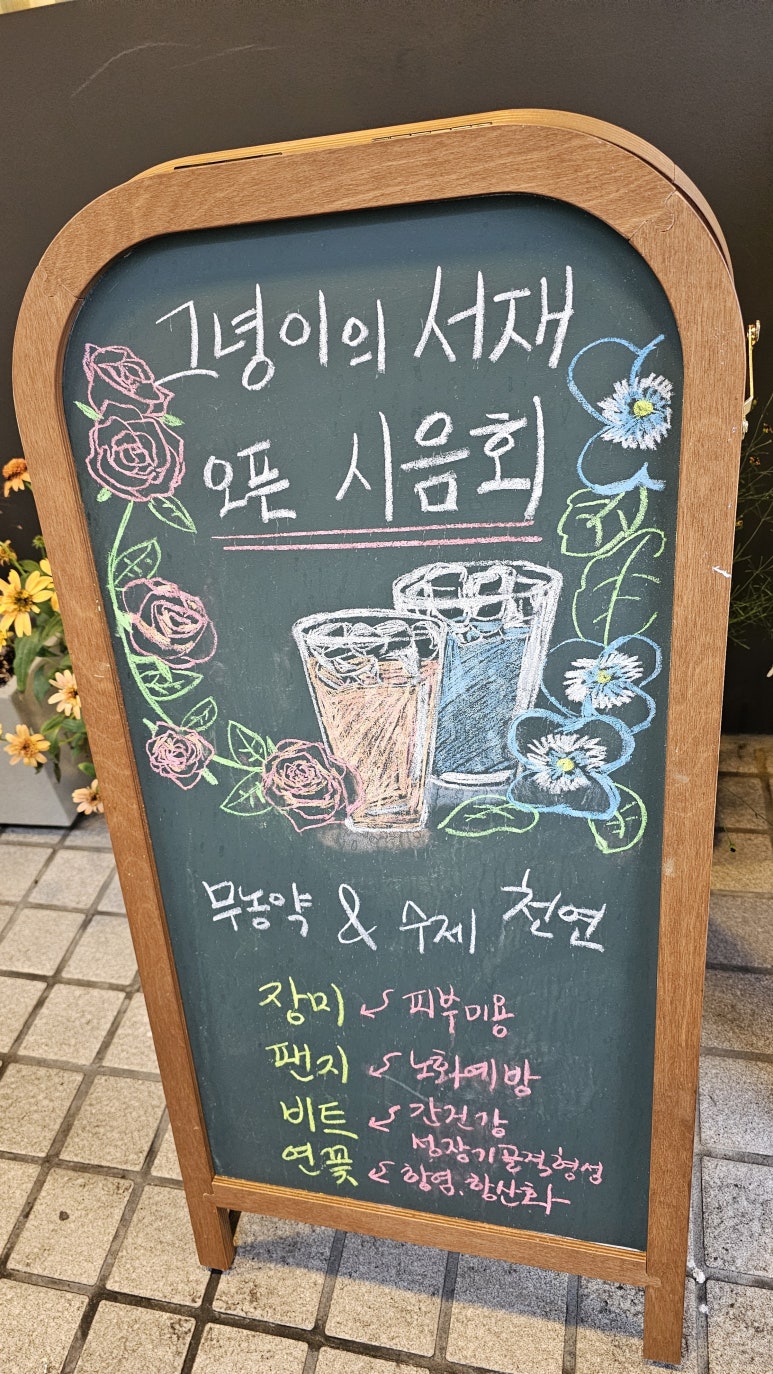 그녕이의 서재
오픈 시음회
무농약 & 수제 천연
장미 ↙ 피부미용
팬지 ↙ 노화예방
비트 ↙ 간건강
성장기골격형성
연꽃 ↙ 항염.항산화